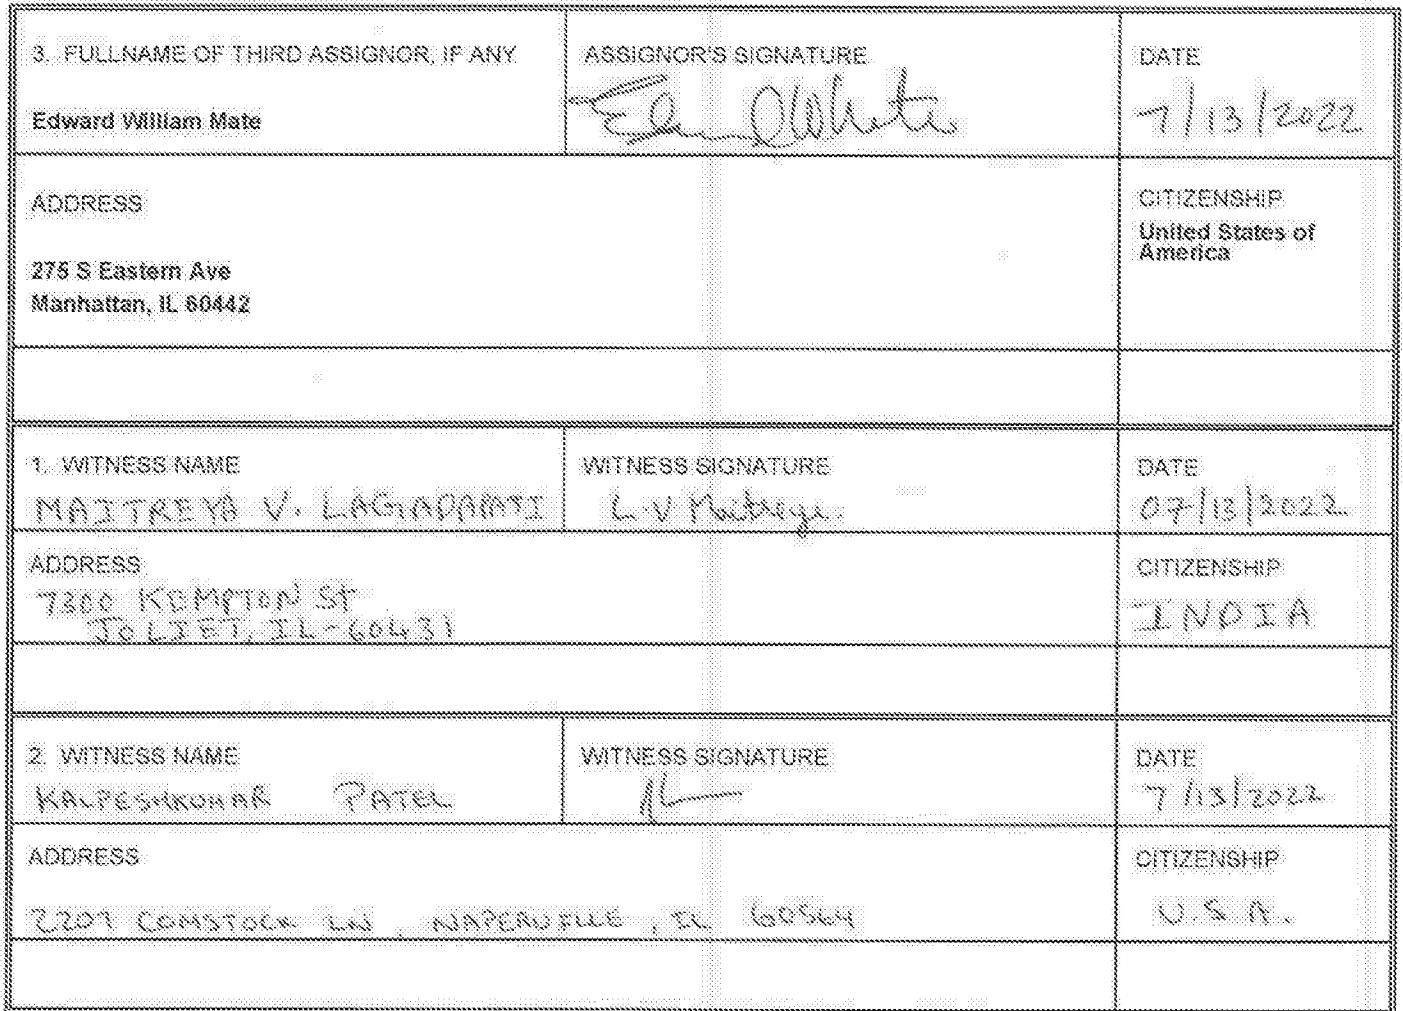 3. FULLNAME OF THIRD ASSIGNOR, IF ANY
Edward William Mate
ASSIGNOR'S SIGNATURE
DATE
7/13/2022
ADDRESS
275 S Eastern Ave
Manhattan, IL 60442
CITIZENSHIP
United States of
America
1. WITNESS NAME
MAITREYA V. LAGADAPATI
WITNESS SIGNATURE
L.V Maitreya.
DATE
07/13/2022
ADDRESS
7300 KEMPTON St
JOLIET, IL-60431
CITIZENSHIP
INDIA
2. WITNESS NAME
KALPESHKUMAR PATEL
WITNESS SIGNATURE
DATE
7/13/2022
ADDRESS
2207 COMSTOCK LN, NAPERVILLE, IL 60564
CITIZENSHIP
U.S.A.